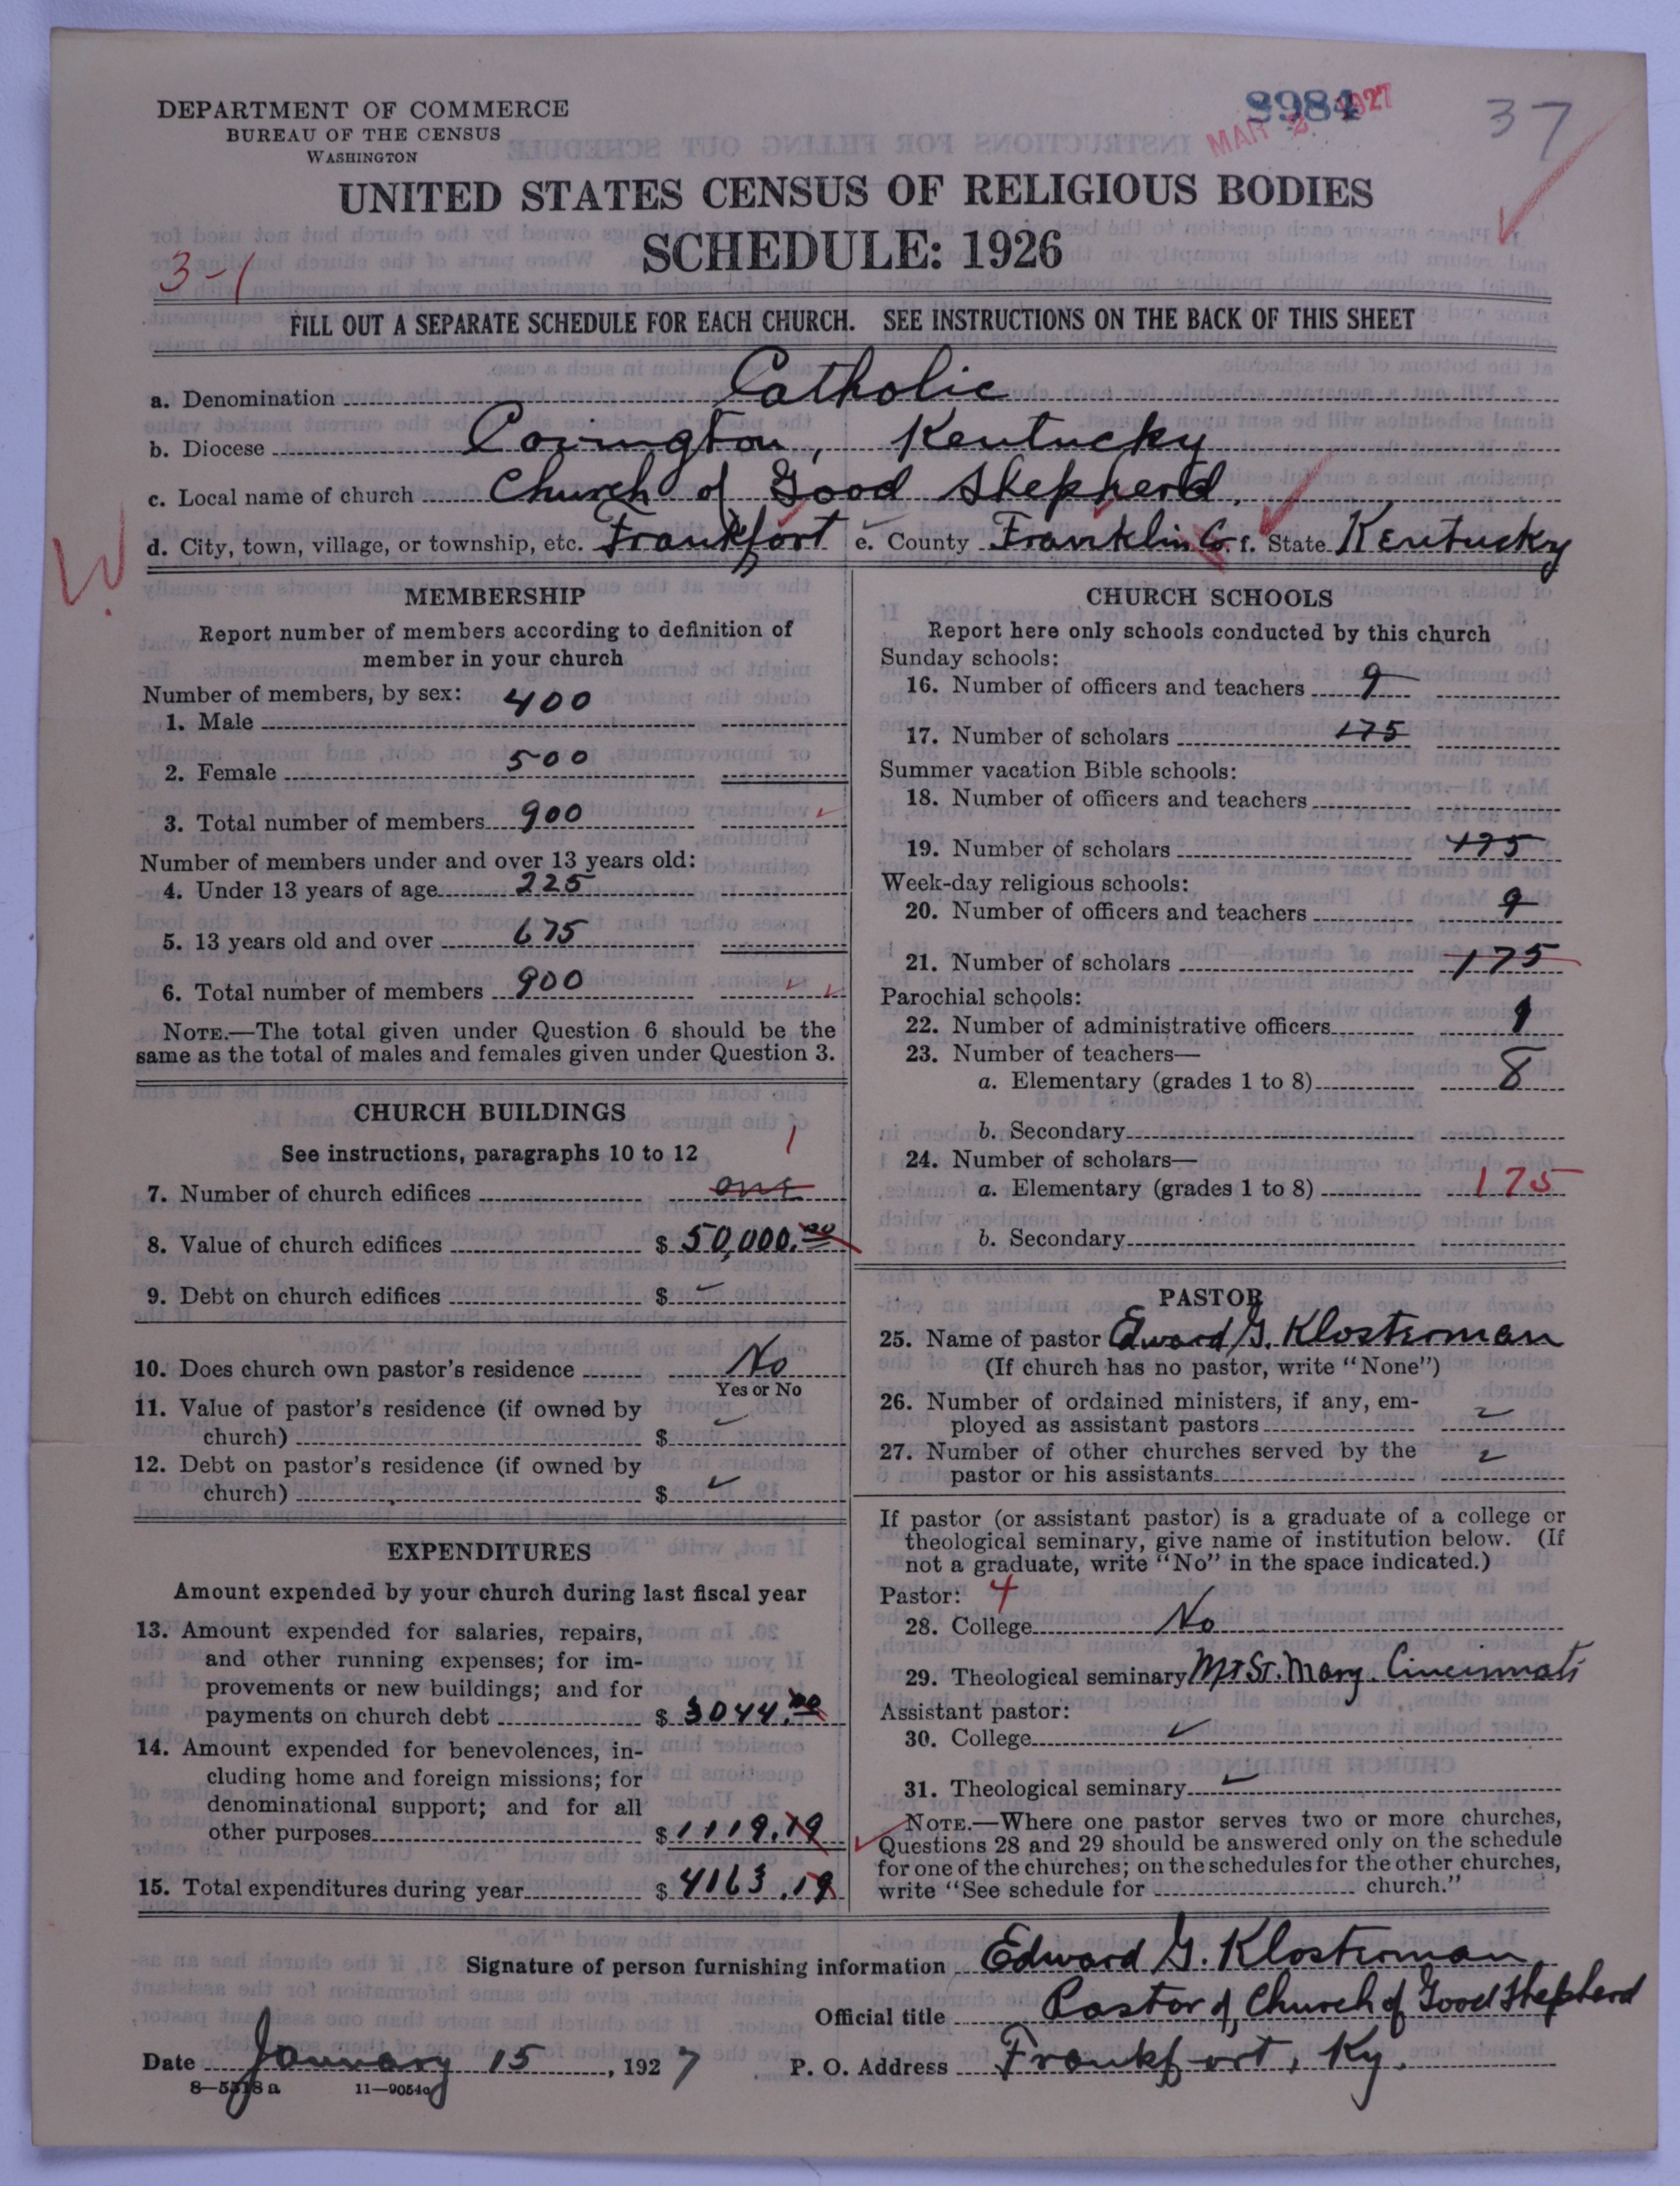 DEPARTMENT OF COMMERCE
BUREAU OF THE CENSUS
WASHINGTON
8984
MAR 2 1927
37
UNITED STATES CENSUS OF RELIGIOUS BODIES
SCHEDULE: 1926
3-1
FILL OUT A SEPARATE SCHEDULE FOR EACH CHURCH. SEE INSTRUCTIONS ON THE BACK OF THIS SHEET
a. Denomination Catholic
b. Diocese Covington, Kentucky
c. Local name of church Church of Good Shepherd.
d. City, town, village, or township, etc. Frankfort e. County Franklin Co. f. State Kentucky
MEMBERSHIP
Report number of members according to definition of
member in your church
Number of members, by sex:
1. Male 400
2. Female 500
3. Total number of members 900
Number of members under and over 13 years old:
4. Under 13 years of age 225
5. 13 years old and over 675
6. Total number of members 900
NOTE.—The total given under Question 6 should be the
same as the total of males and females given under Question 3.
CHURCH BUILDINGS
See instructions, paragraphs 10 to 12
1
7. Number of church edifices one
8. Value of church edifices $ 50,000.00
9. Debt on church edifices $
10. Does church own pastor's residence No
Yes or No
11. Value of pastor's residence (if owned by
church) $
12. Debt on pastor's residence (if owned by
church) $
EXPENDITURES
Amount expended by your church during last fiscal year
13. Amount expended for salaries, repairs,
and other running expenses; for im-
provements or new buildings; and for
payments on church debt $ 3044.00
14. Amount expended for benevolences, in-
cluding home and foreign missions; for
denominational support; and for all
other purposes $ 1119.19
15. Total expenditures during year $ 4163.19
CHURCH SCHOOLS
Report here only schools conducted by this church
Sunday schools:
16. Number of officers and teachers 9
17. Number of scholars 175
Summer vacation Bible schools:
18. Number of officers and teachers
19. Number of scholars 175
Week-day religious schools:
20. Number of officers and teachers 9
21. Number of scholars 175
Parochial schools:
22. Number of administrative officers 1
23. Number of teachers—
a. Elementary (grades 1 to 8) 8
b. Secondary
24. Number of scholars—
a. Elementary (grades 1 to 8) 175
b. Secondary
PASTOR
25. Name of pastor Edward G. Klosterman
(If church has no pastor, write "None")
26. Number of ordained ministers, if any, em-
ployed as assistant pastors 2
27. Number of other churches served by the
pastor or his assistants 2
If pastor (or assistant pastor) is a graduate of a college or
theological seminary, give name of institution below. (If
not a graduate, write "No" in the space indicated.)
Pastor: 4
28. College No
29. Theological seminary Mt St. Mary. Cincinnati
Assistant pastor:
30. College
31. Theological seminary
NOTE.—Where one pastor serves two or more churches,
Questions 28 and 29 should be answered only on the schedule
for one of the churches; on the schedules for the other churches,
write "See schedule for church."
Signature of person furnishing information Edward G. Klosterman
Official title Pastor of Church of Good Shepherd
Date January 15, 1927 P. O. Address Frankfort, Ky.
8—5518a 11—9054